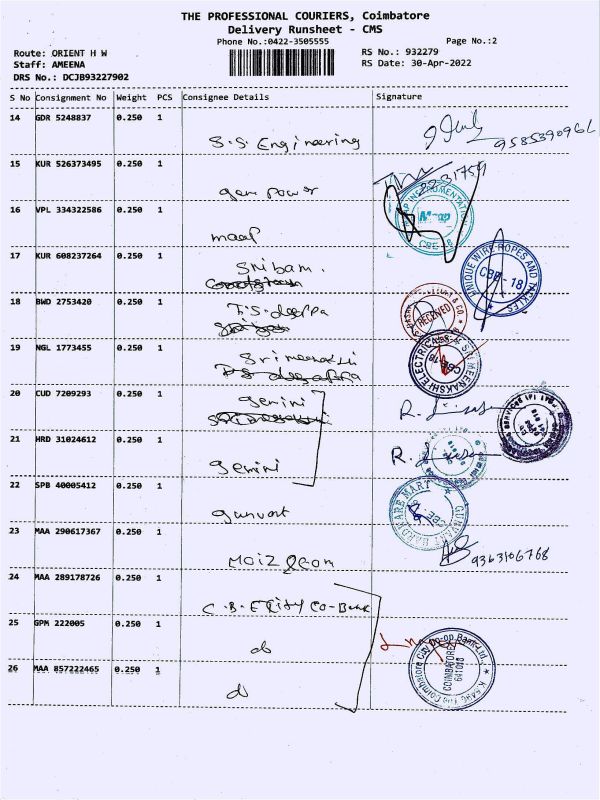 THE PROFESSIONAL COURIERS, Coimbatore
Delivery Runsheet - CMS
Phone No.:0422-3505555
Page No.:2
Route: ORIENT H W
RS No.: 932279
Staff: AMEENA
RS Date: 30-Apr-2022
DRS No.: DCJB93227902
S No Consignment No Weight PCS Consignee Details Signature
14 GDR 5248837 0.250 1
S.S. Engineering
9585390962
15 KUR 526373495 0.250 1
gem power
16 VPL 334322586 0.250 1
maap
INSTRUMENTATION
CBE
17 KUR 608237264 0.250 1
UNIQUE WIRE ROPES AND TACKLES
CBE - 18
18 BWD 2753420 0.250 1
T.S. deeppa
RECEIVED
& CO.
19 NGL 1773455 0.250 1
Sri meenakshi
SRI MEENAKSHI ELECTRICALS
20 CUD 7209293 0.250 1
gemini
21 HRD 31024612 0.250 1
gemini
22 SPB 40005412 0.250 1
gunvant
GUNVERT HARDWARE MART
CBE
23 MAA 290617367 0.250 1
9363106768
24 MAA 289178726 0.250 1
25 GPM 222005 0.250 1
do
26 MAA 857222465 0.250 1
do
The Coimbatore City Co-op Bank Ltd.,
COIMBATORE